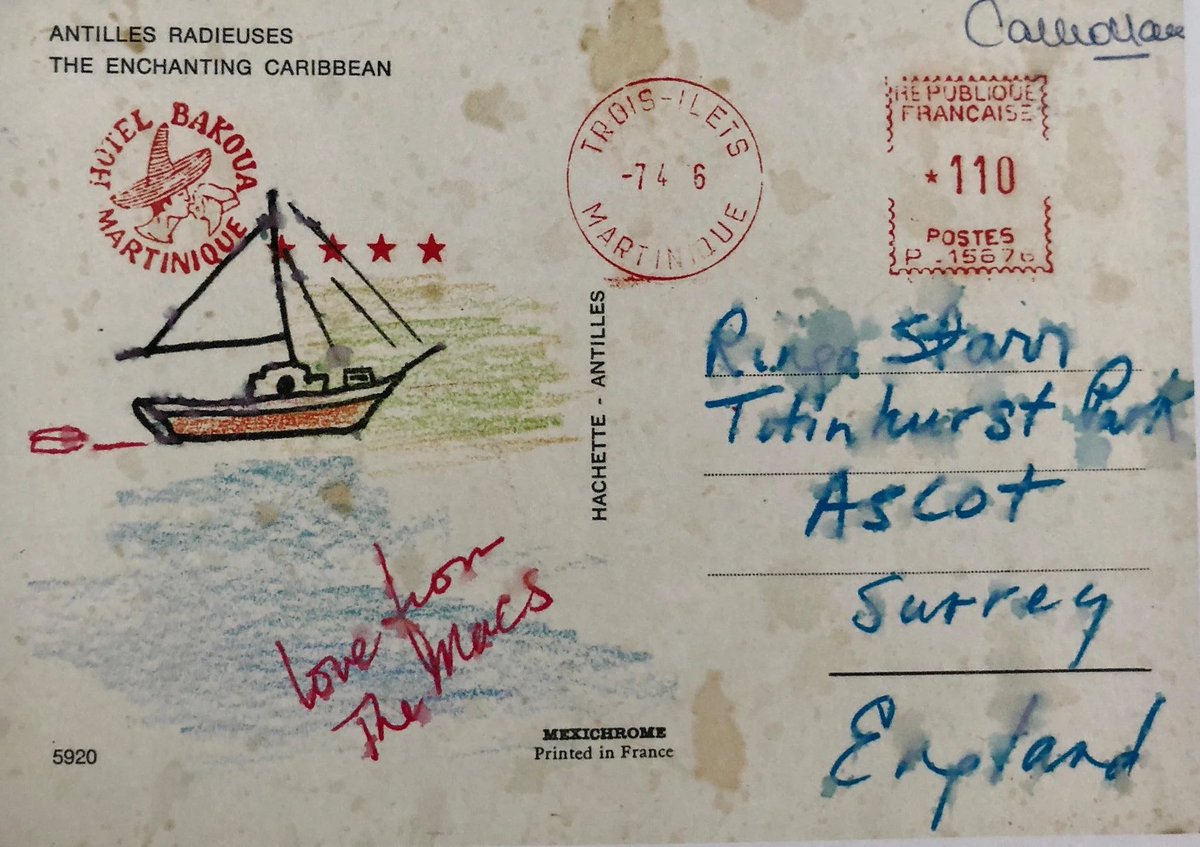 ANTILLES RADIEUSES
THE ENCHANTING CARIBBEAN
HOTEL BAKOUA
MARTINIQUE
TROIS-ILETS
-7 4 6
MARTINIQUE
REPUBLIQUE
FRANCAISE
*110
POSTES
P .15676
HACHETTE - ANTILLES
Ringo Starr
Titinhurst Park
Ascot
Surrey
England
Love from
The Macs
5920
MEXICHROME
Printed in France